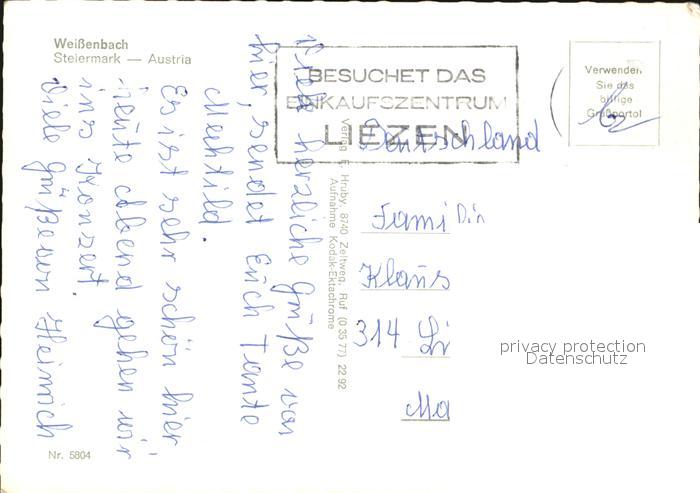 Weißenbach
Steiermark — Austria
BESUCHET DAS
EINKAUFSZENTRUM
LIEZEN
Verwenden
Sie das
billige
Großportol
Viele herzliche Grüße von
hier, sendet Euch Tante
Mechtild.
Es ist sehr schön hier,
heute Abend gehen wir
ins Konzert.
Viele Grüße von Heinrich
Verlag E. Hruby, 8740 Zeltweg, Ruf (0 35 77) 22 92
Aufnahme Kodak-Ektachrome
Deutschland
Fami
Klaus
314 Li
Ma
privacy protection
Datenschutz
Nr. 5804